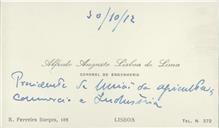 30/10/12
Alfredo Augusto Lisboa de Lima
CORONEL DE ENGENHARIA
Presidente da União da agricultura,
commercio e Industria
R. Ferreira Borges, 108 LISBOA TEL. N. 570